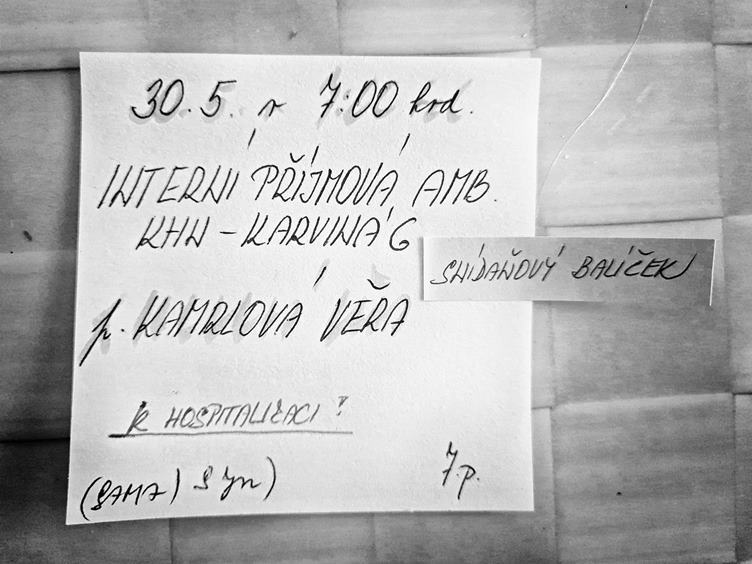 30.5. v 7:00 hod.
INTERNÍ PŘÍJMOVÁ AMB.
KHN - KARVINÁ 6
SNÍDAŇOVÝ BALÍČEK
p. KAMRLOVÁ VĚRA
K HOSPITALIZACI?
(SAMA) syn)
7.p.